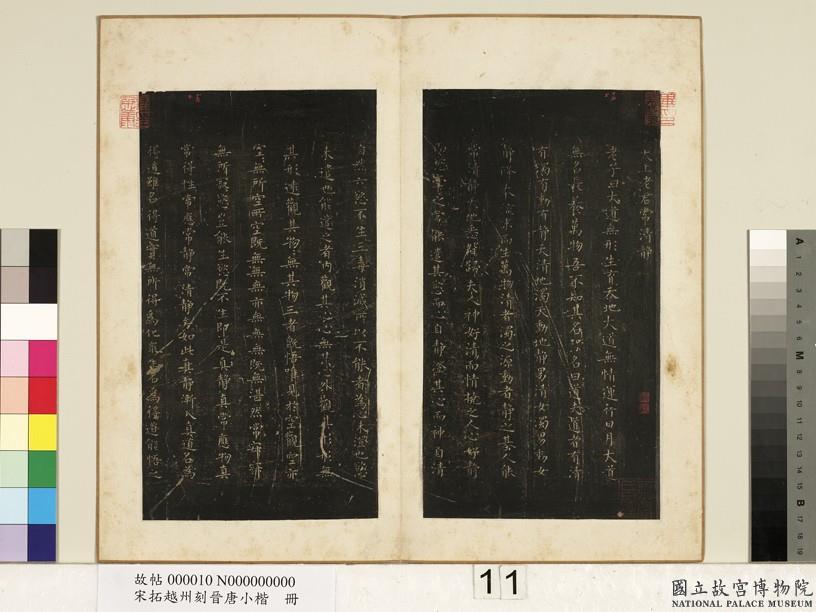 太上老君常清靜
老子曰大道無形生育天地大道無情運行日月大道
無名長養萬物吾不知其名強名曰道夫道者有清
有濁有動有靜天清地濁天動地靜男清女濁男動女
靜降本流末而生萬物清者濁之源動者靜之基人能
常清靜天地悉皆歸夫人神好清而情撓之人心好靜
而慾牽之常能遣其慾而心自靜澄其心而神自清
自然六慾不生三毒消滅所以不能者為心未澄也慾
未遣也能遣之者內觀其心心無其心外觀其形形無
其形遠觀其物物無其物三者既悟唯見於空觀空亦
空無所空所空既無無無亦無無無既無湛然常寂寂
無所寂慾豈能生慾既不生即是真靜真常應物真
常得性常應常靜常清靜矣如此真靜漸入真道名為
得道雖名得道實無所得為化眾生名為得道能悟之
故帖 000010 N000000000
宋拓越州刻晉唐小楷 冊
11
國立故宮博物院
NATIONAL PALACE MUSEUM
A
1
2
3
4
5
6
M
8
9
10
11
12
13
14
15
B
17
18
19